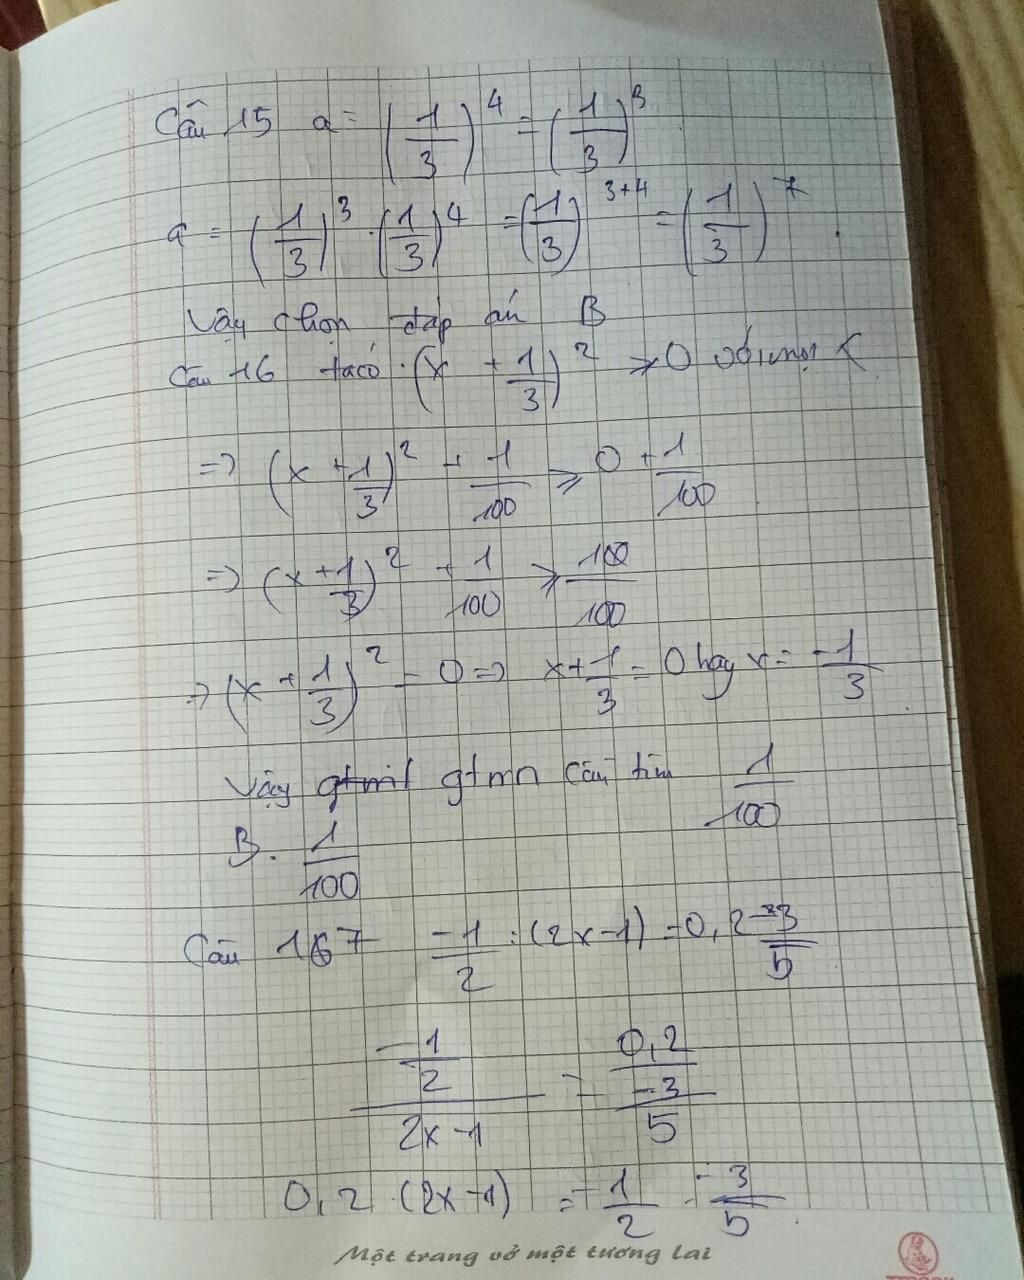 Câu 15 a = (1/3)^4 = (1/3)^3
a = (1/3)^3 . (1/3)^4 = (1/3)^{3+4} = (1/3)^7
Vậy chọn đáp án B
Câu 16 ta có (x + 1/3)^2 ≥ 0 với mọi x
=> (x + 1/3)^2 + 1/100 ≥ 0 + 1/100
=> (x + 1/3)^2 + 1/100 ≥ 100/100
=> (x + 1/3)^2 = 0 => x + 1/3 = 0 hay x = -1/3
Vậy gtmn cần tìm 1/100
B. 1/100
Câu 167 -1/2 : (2x-1) = 0,2 : -3/5
(-1/2)/(2x-1) = 0,2/(-3/5)
0,2 . (2x-1) = -1/2 . -3/5
Một trang vở một tương lai